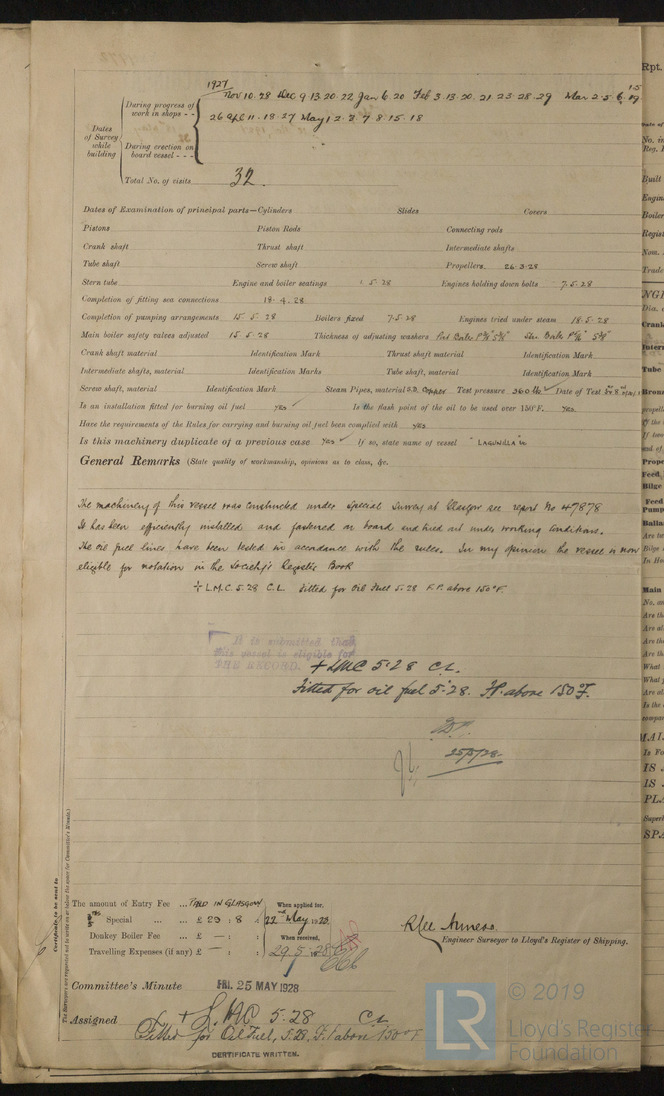 1927
Nov 10. 28 Dec 9. 13. 20. 22 Jan 6. 20 Feb 3. 13. 20. 21. 23. 28. 29 Mar 2. 5. 6.
During progress of work in shops - -
26 Apl 11. 18. 27 May 1. 2. 7. 8. 15. 18
Dates of Survey while building
During erection on board vessel - - -
Total No. of visits 32.
Dates of Examination of principal parts—Cylinders Slides Covers
Pistons Piston Rods Connecting rods
Crank shaft Thrust shaft Intermediate shafts
Tube shaft Screw shaft Propellers 26.3.28
Stern tube Engine and boiler seatings 1.5.28 Engines holding down bolts 7.5.28
Completion of fitting sea connections 18.4.28
Completion of pumping arrangements 15.5.28 Boilers fixed 7.5.28 Engines tried under steam 18.5.28
Main boiler safety valves adjusted 15.5.28 Thickness of adjusting washers Port Boiler Star Boiler
Crank shaft material Identification Mark Thrust shaft material Identification Mark
Intermediate shafts, material Identification Marks Tube shaft, material Identification Mark
Screw shaft, material Identification Mark Steam Pipes, material S.D. Copper Test pressure 360 lbs Date of Test
Is an installation fitted for burning oil fuel yes Is the flash point of the oil to be used over 150°F. yes.
Have the requirements of the Rules for carrying and burning oil fuel been complied with yes
Is this machinery duplicate of a previous case yes If so, state name of vessel "LAGUNILLA"
General Remarks (State quality of workmanship, opinions as to class, &c.
The machinery of this vessel was constructed under Special Survey at Glasgow see report No 47878
It has been efficiently installed and fastened on board and tried out under working conditions.
The oil fuel lines have been tested in accordance with the rules. In my opinion the vessel is now
eligible for notation in the Society's Register Book
+ L.M.C. 5.28 C.L. Fitted for Oil Fuel 5.28 F.P. above 150°F.
It is submitted that
this vessel is eligible for
THE RECORD. + LMC 5.28 C.L.
Fitted for oil fuel 5.28. F.P. above 150°F.
25/5/28
Certificate to be sent to
The Surveyors are requested not to write on or below the space for Committee's Minute.
The amount of Entry Fee ... PAID IN GLASGOW When applied for,
Special ... ... £ 23 : 8 22nd May 1928
Donkey Boiler Fee ... £ — : When received,
Travelling Expenses (if any) £ — : 29.5.28
Engineer Surveyor to Lloyd's Register of Shipping.
Committee's Minute FRI. 25 MAY 1928
Assigned + L.M.C 5.28 C.L.
Fitted for Oil Fuel, 5.28, F.P. above 150°F
CERTIFICATE WRITTEN.
LR © 2019
Lloyd's Register
Foundation